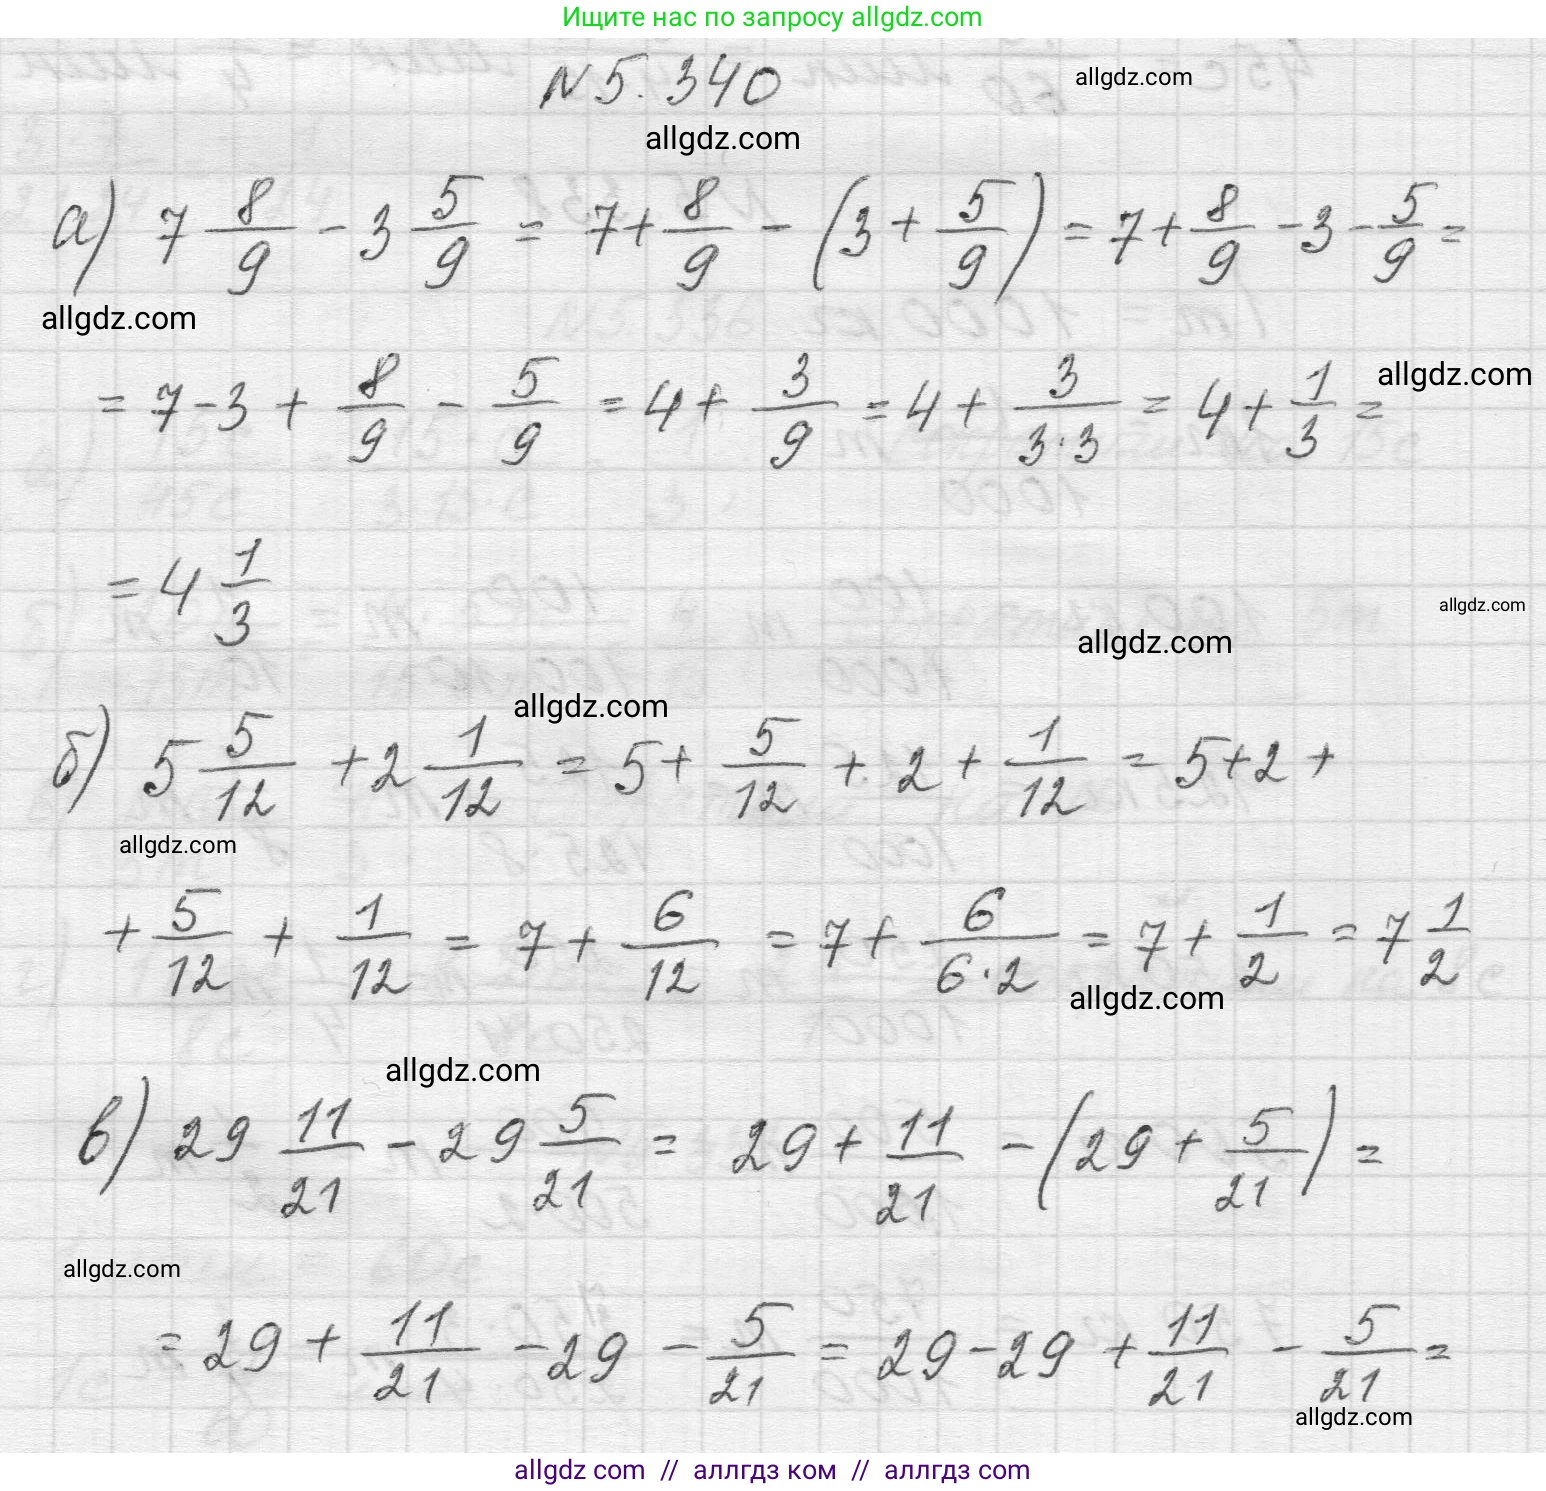 Ищите нас по запросу allgdz.com
N 5.340
allgdz.com
allgdz.com
а) 7 8/9 - 3 5/9 = 7 + 8/9 - (3 + 5/9) = 7 + 8/9 - 3 - 5/9 =
allgdz.com
= 7 - 3 + 8/9 - 5/9 = 4 + 3/9 = 4 + 3/(3·3) = 4 + 1/3 =
allgdz.com
= 4 1/3
allgdz.com
allgdz.com
allgdz.com
б) 5 5/12 + 2 1/12 = 5 + 5/12 + 2 + 1/12 = 5 + 2 +
allgdz.com
+ 5/12 + 1/12 = 7 + 6/12 = 7 + 6/(6·2) = 7 + 1/2 = 7 1/2
allgdz.com
allgdz.com
в) 29 11/21 - 29 5/21 = 29 + 11/21 - (29 + 5/21) =
allgdz.com
= 29 + 11/21 - 29 - 5/21 = 29 - 29 + 11/21 - 5/21 =
allgdz.com
allgdz com // аллгдз ком // аллгдз com